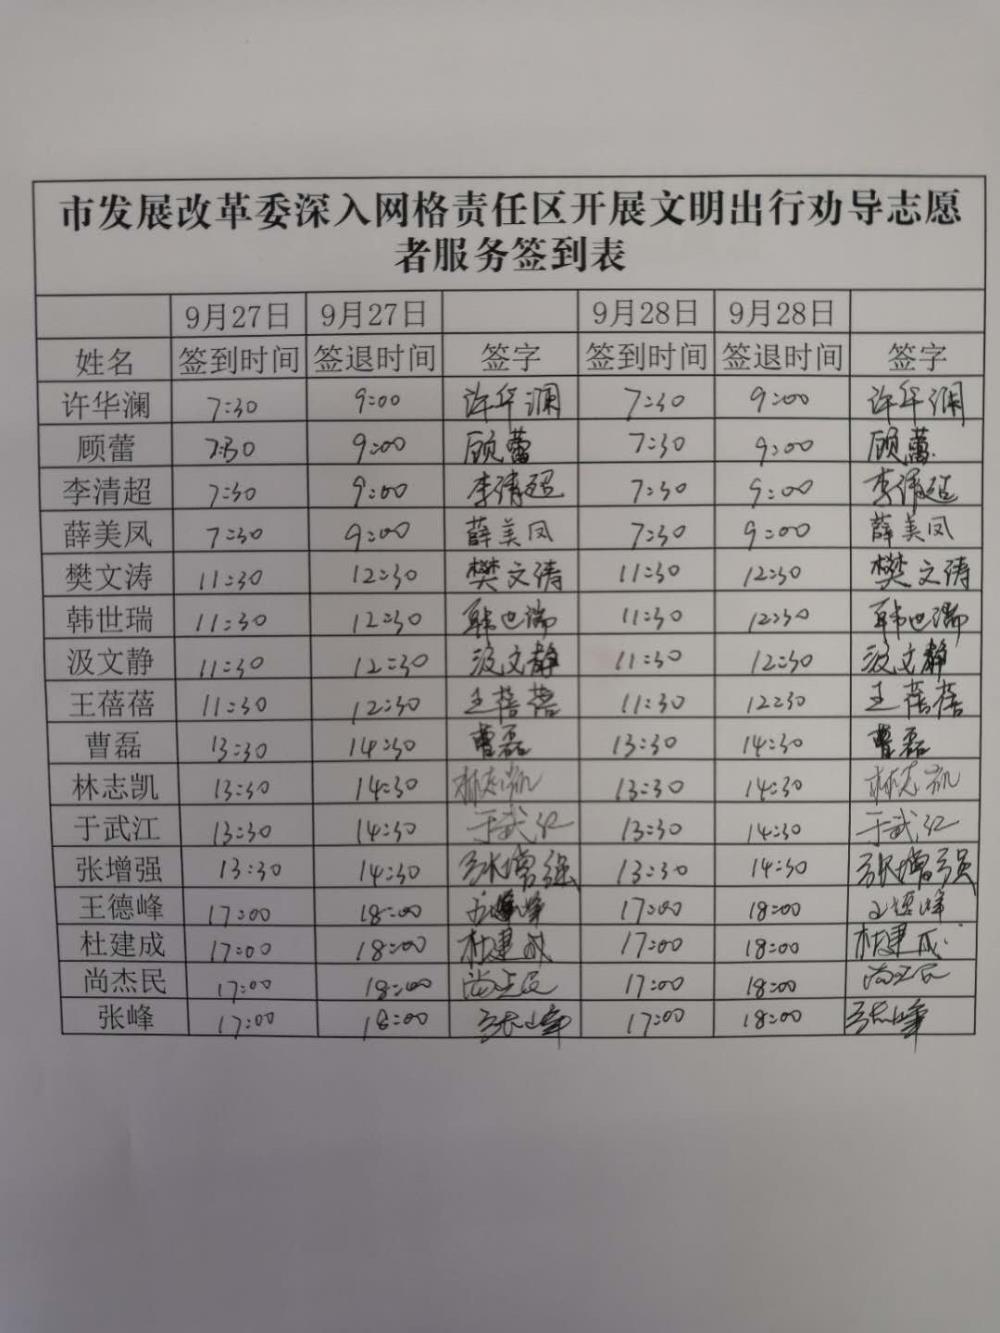 市发展改革委深入网格责任区开展文明出行劝导志愿
者服务签到表
9月27日 9月27日 9月28日 9月28日
姓名 签到时间 签退时间 签字 签到时间 签退时间 签字
许华澜 7:30 9:00 许华澜 7:30 9:00 许华澜
顾蕾 7:30 9:00 顾蕾 7:30 9:00 顾蕾
李清超 7:30 9:00 李清超 7:30 9:00 李清超
薛美凤 7:30 9:00 薛美凤 7:30 9:00 薛美凤
樊文涛 11:30 12:30 樊文涛 11:30 12:30 樊文涛
韩世瑞 11:30 12:30 韩世瑞 11:30 12:30 韩世瑞
汲文静 11:30 12:30 汲文静 11:30 12:30 汲文静
王蓓蓓 11:30 12:30 王蓓蓓 11:30 12:30 王蓓蓓
曹磊 13:30 14:30 曹磊 13:30 14:30 曹磊
林志凯 13:30 14:30 林志凯 13:30 14:30 林志凯
于武江 13:30 14:30 于武江 13:30 14:30 于武江
张增强 13:30 14:30 张增强 13:30 14:30 张增强
王德峰 17:00 18:00 王德峰 17:00 18:00 王德峰
杜建成 17:00 18:00 杜建成 17:00 18:00 杜建成
尚杰民 17:00 18:00 尚杰民 17:00 18:00 尚杰民
张峰 17:00 18:00 张峰 17:00 18:00 张峰